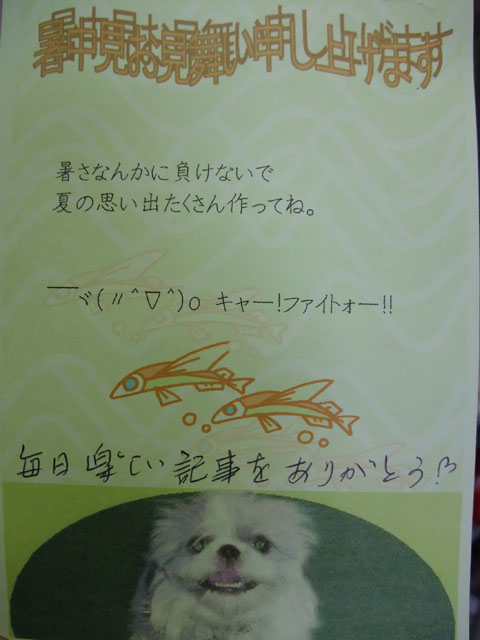 暑中見お見舞い申し上げます
暑さなんかに負けないで
夏の思い出たくさん作ってね。
￣ヾ(〃^▽^)o キャー!ファイトォー!!
毎日楽しい記事をありがとう!